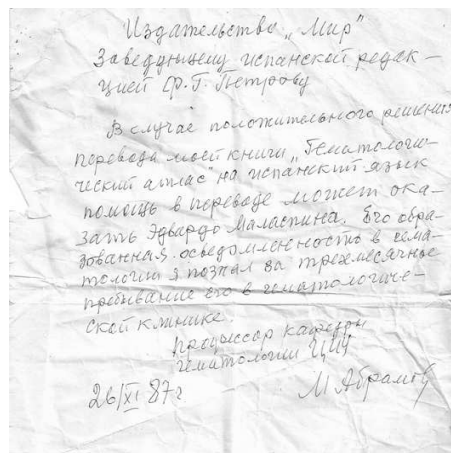 Издательство „Мир"
Заведующему испанской редак-
цией Ф. Г. Петрову
В случае положительного решения
перевода моей книги „Гематологи-
ческий атлас" на испанский язык
помощь в переводе может ока-
зать Эдвардо Маласпина. Его обра-
зованная осведомленность в гема-
тологии я познал за трехмесячное
пребывание его в гематологиче-
ской клинике.
профессор кафедры
гематологии ЦИУ
26/XI 87г. М Абрамов